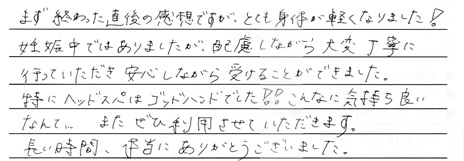 まず 終わった直後の感想ですが、とても身体が軽くなりました!
妊娠中ではありましたが、配慮しながら大変丁寧に
行っていただき 安心しながら 受けることができました。
特にヘッドスペはゴッドハンドでした!! こんなに気持ち良い
なんて… またぜひ利用させていただきます。
長い時間、本当にありがとうございました。